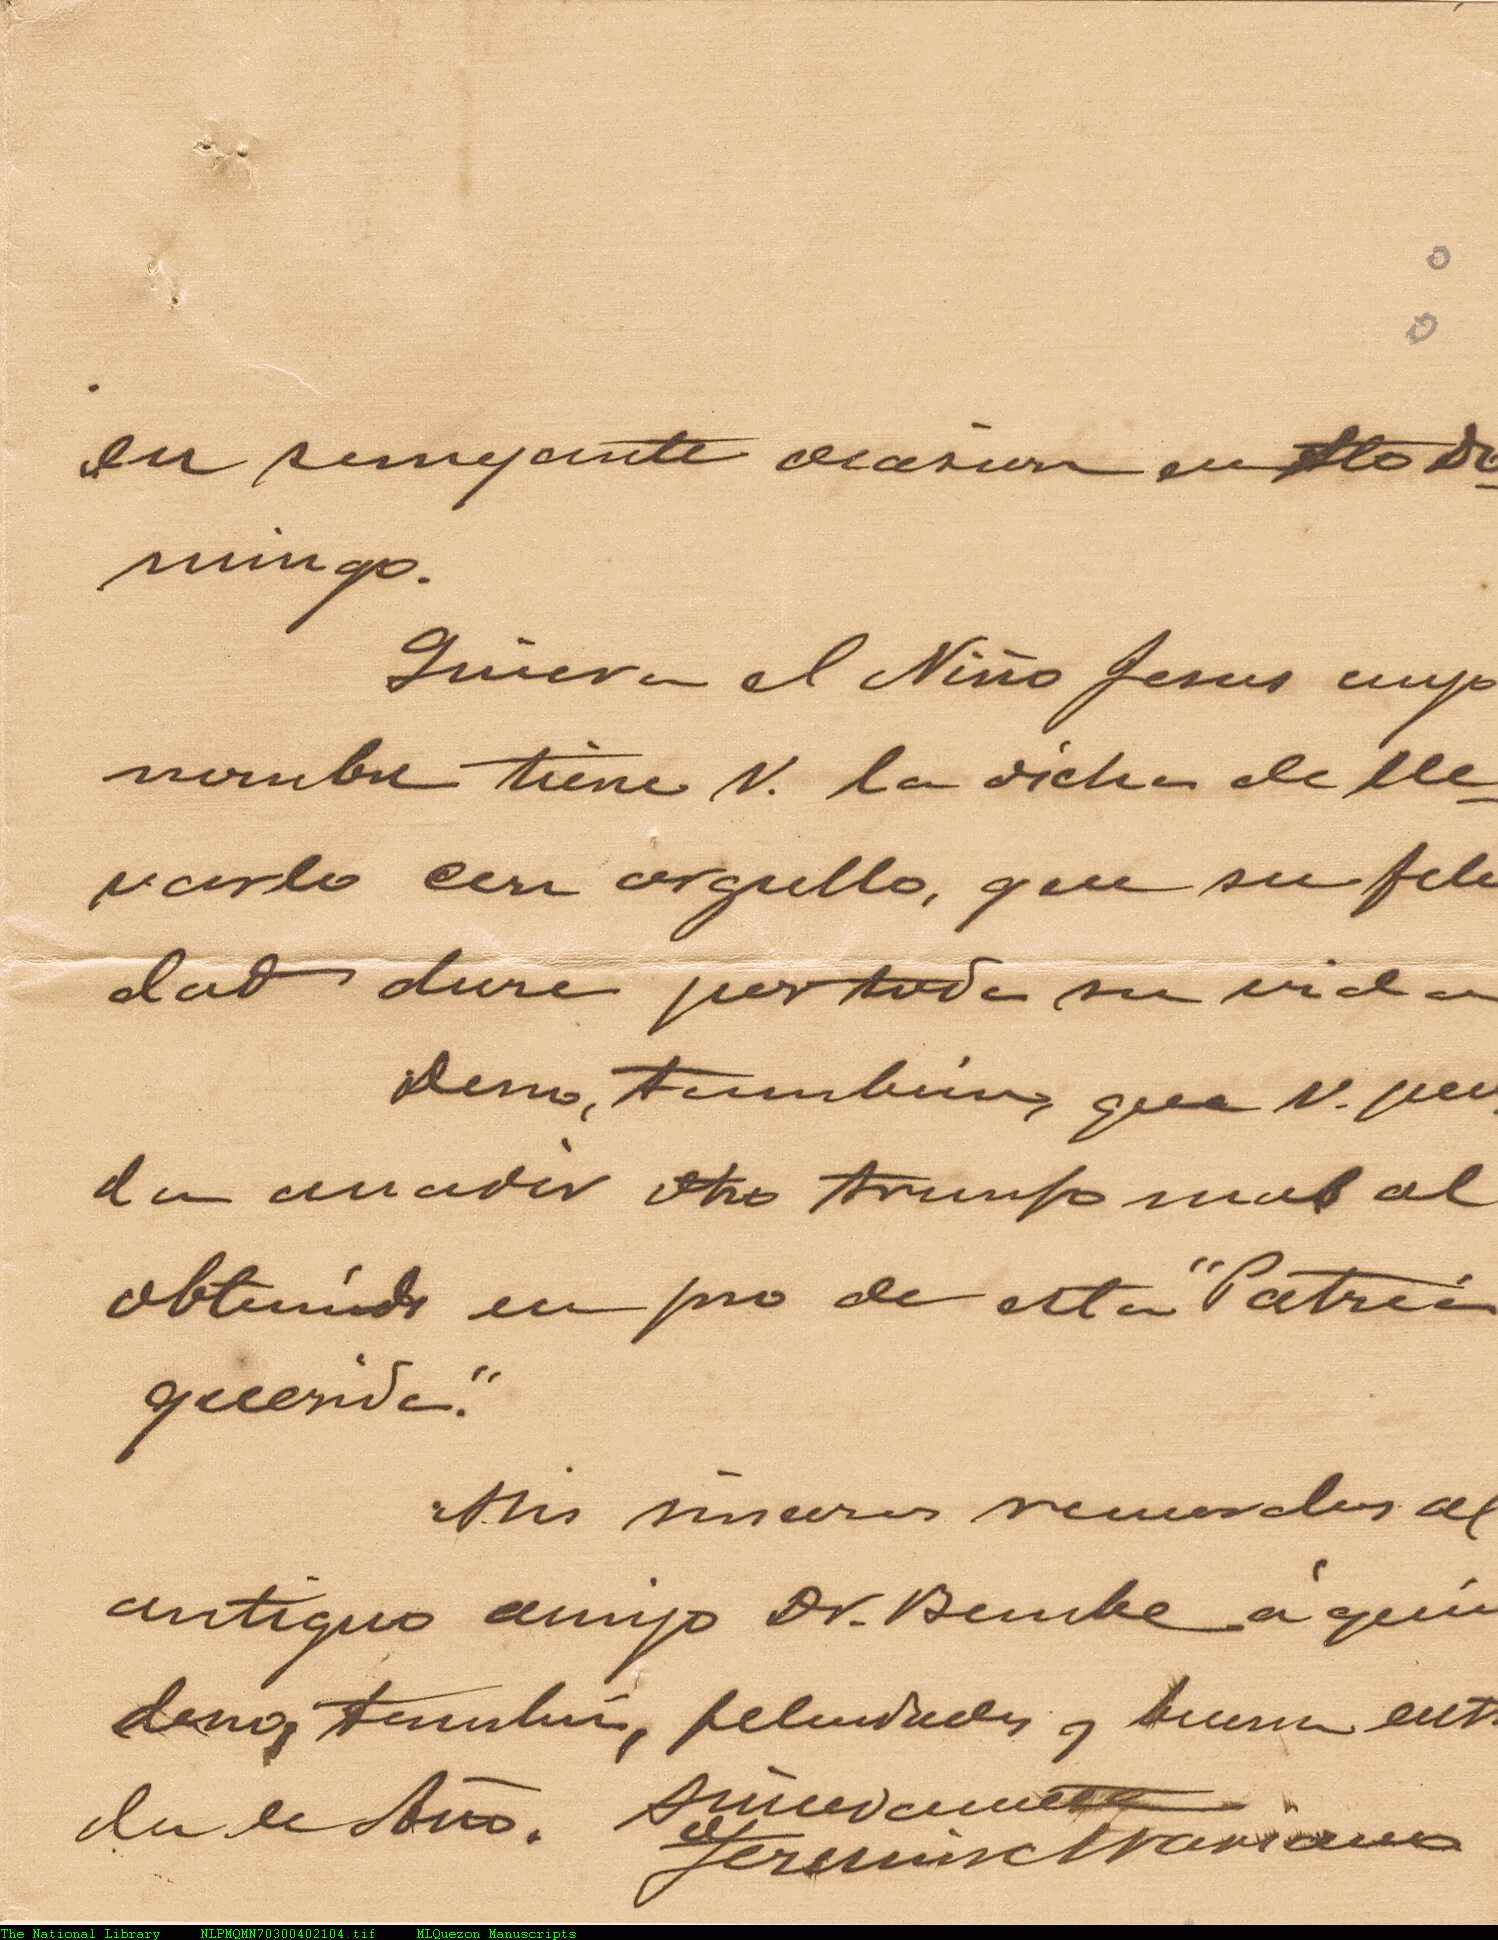 en semejante ocasion en Sto Do
mingo.
Quiera el Niño Jesus cuyo
nombre tiene V. la dicha de lle
varlo con orgullo, que su felici
dad dure por toda su vida
Deseo, tambien, que V. pue
da anadir otro triunfo mas al
obtenido en pro de esta "Patria
querida."
Mis sinceros recuerdos al
antiguo amigo Dr. á quien
deseo, tambien, felicidades y buena entra
da de Año. Sinceramente
Mariano
The National Library NLPMQMN70300402104.tif MLQuezon Manuscripts